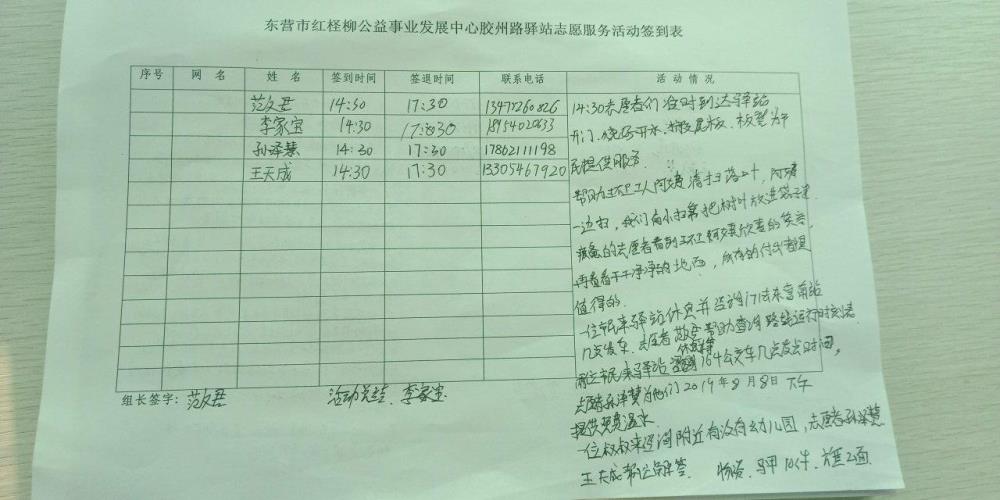 东营市红柽柳公益事业发展中心胶州路驿站志愿服务活动签到表
序号 网 名 姓 名 签到时间 签退时间 联系电话 活 动 情 况
范文君 14:30 17:30
李家宝 14:30 17:30 18954020633
孙泽慧 14:30 17:30 17862111198
王天成 14:30 17:30 13305467920
14:30志愿者们准时到达驿站
开门、烧好开水、板凳为市
民提供服务.
帮助环卫工人阿姨清扫落叶,阿姨
一边扫,我们用小扫帚把树叶放进袋子里
的志愿者看到环卫阿姨欣喜的笑容,
再看看干干净净的地面,所有的付出都是
值得的.
一位市民来驿站休息并咨询171去东营南站
几点发车.志愿者 帮助查询路线运行时刻表
两位市民来驿站休息 164公交车几点发点时间,
志愿者孙泽慧为他们 2019年8月8日 下午
提供免费温水
一位叔叔来咨询附近有没有幼儿园,志愿者孙泽慧
王天成帮忙解答. 物资、马甲10件.旗2面
组长签字: 范文君 活动总结、李家宝